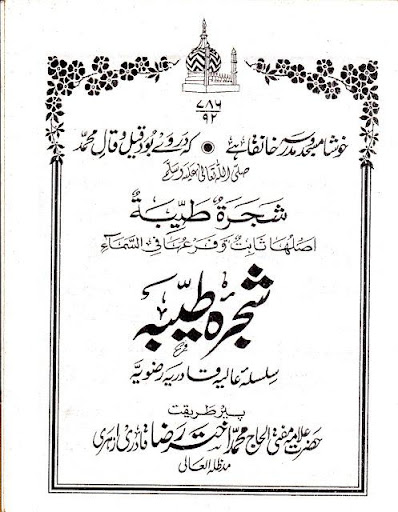 ۷۸۶
۹۲
خوشا مسجد و مدرسہ خانقاہے • کہ در وے بود قیل و قال محمد
صلی اللہ تعالیٰ علیہ وسلم
شَجَرَۃٌ طَیِّبَۃٌ
اَصْلُهَا ثَابِتٌ وَّفَرْعُهَا فِی السَّمَآءِ
شجرۂ طیبہ
سلسلۂ عالیہ قادریہ رضویہ
پیر طریقت
حضرت علامہ مفتی الحاج محمد اختر رضا قادری ازہری
مدظلہ العالی